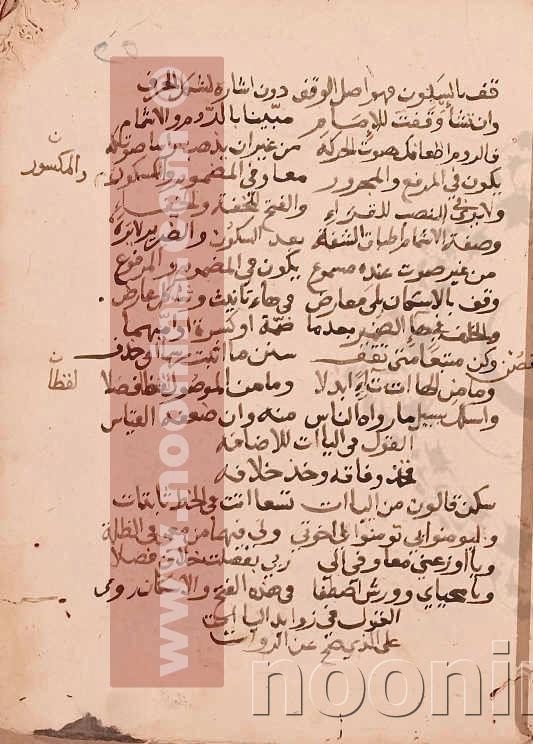 قف بالسكون فهو اصل الوقف دون اشارة لشكل الحرف
وان تشأ وقفت للامام مبينا بالروم والاشمام
فالروم اضعافك صوت الحركة من غير ان يذهب راسا صوتكه
يكون في المرفوع والمجرور معا وفي المضموم والمكسور
والمكسور
ولا يرى في النصب للقراء والفتح للخفة والخفاء
وصفة الاشمام اطباق الشفاه بعد السكون والضرير لا يراه
من غير صوت عنده مسموع يكون في المضموم والمرفوع
وقف بالاسكان بلا معارض في هاء تانيث وشكل عارض
والخلف في هاء الضمير بعدما ضمة او كسرة او اميهما
فصل وكن متبعا متى تقف سنن ما اثبت رسما او حذف
لفظا
وما من الهاءات تاء ابدلا وما من الموصول لفظا فصلا
واسلك سبيل ما رواه الناس منه وان ضعفه القياس
القول في الياات للاضافة
فخذ وفاقه وخذ خلافه
سكن قالون من الياات تسعا اتت في الخط ثابتات
وليومنوا بي تومنوا لي اخوتي ولي فيها من معي في الظلة
وياء اوزعني معا وفي الى ربي بفصلت خلاف فصلا
وياء محياي وورش اصطفى في هذه الفتح والاسكان روى
القول في زوايد الياات
على الذي صح عن الروات
www.noonin
noonin